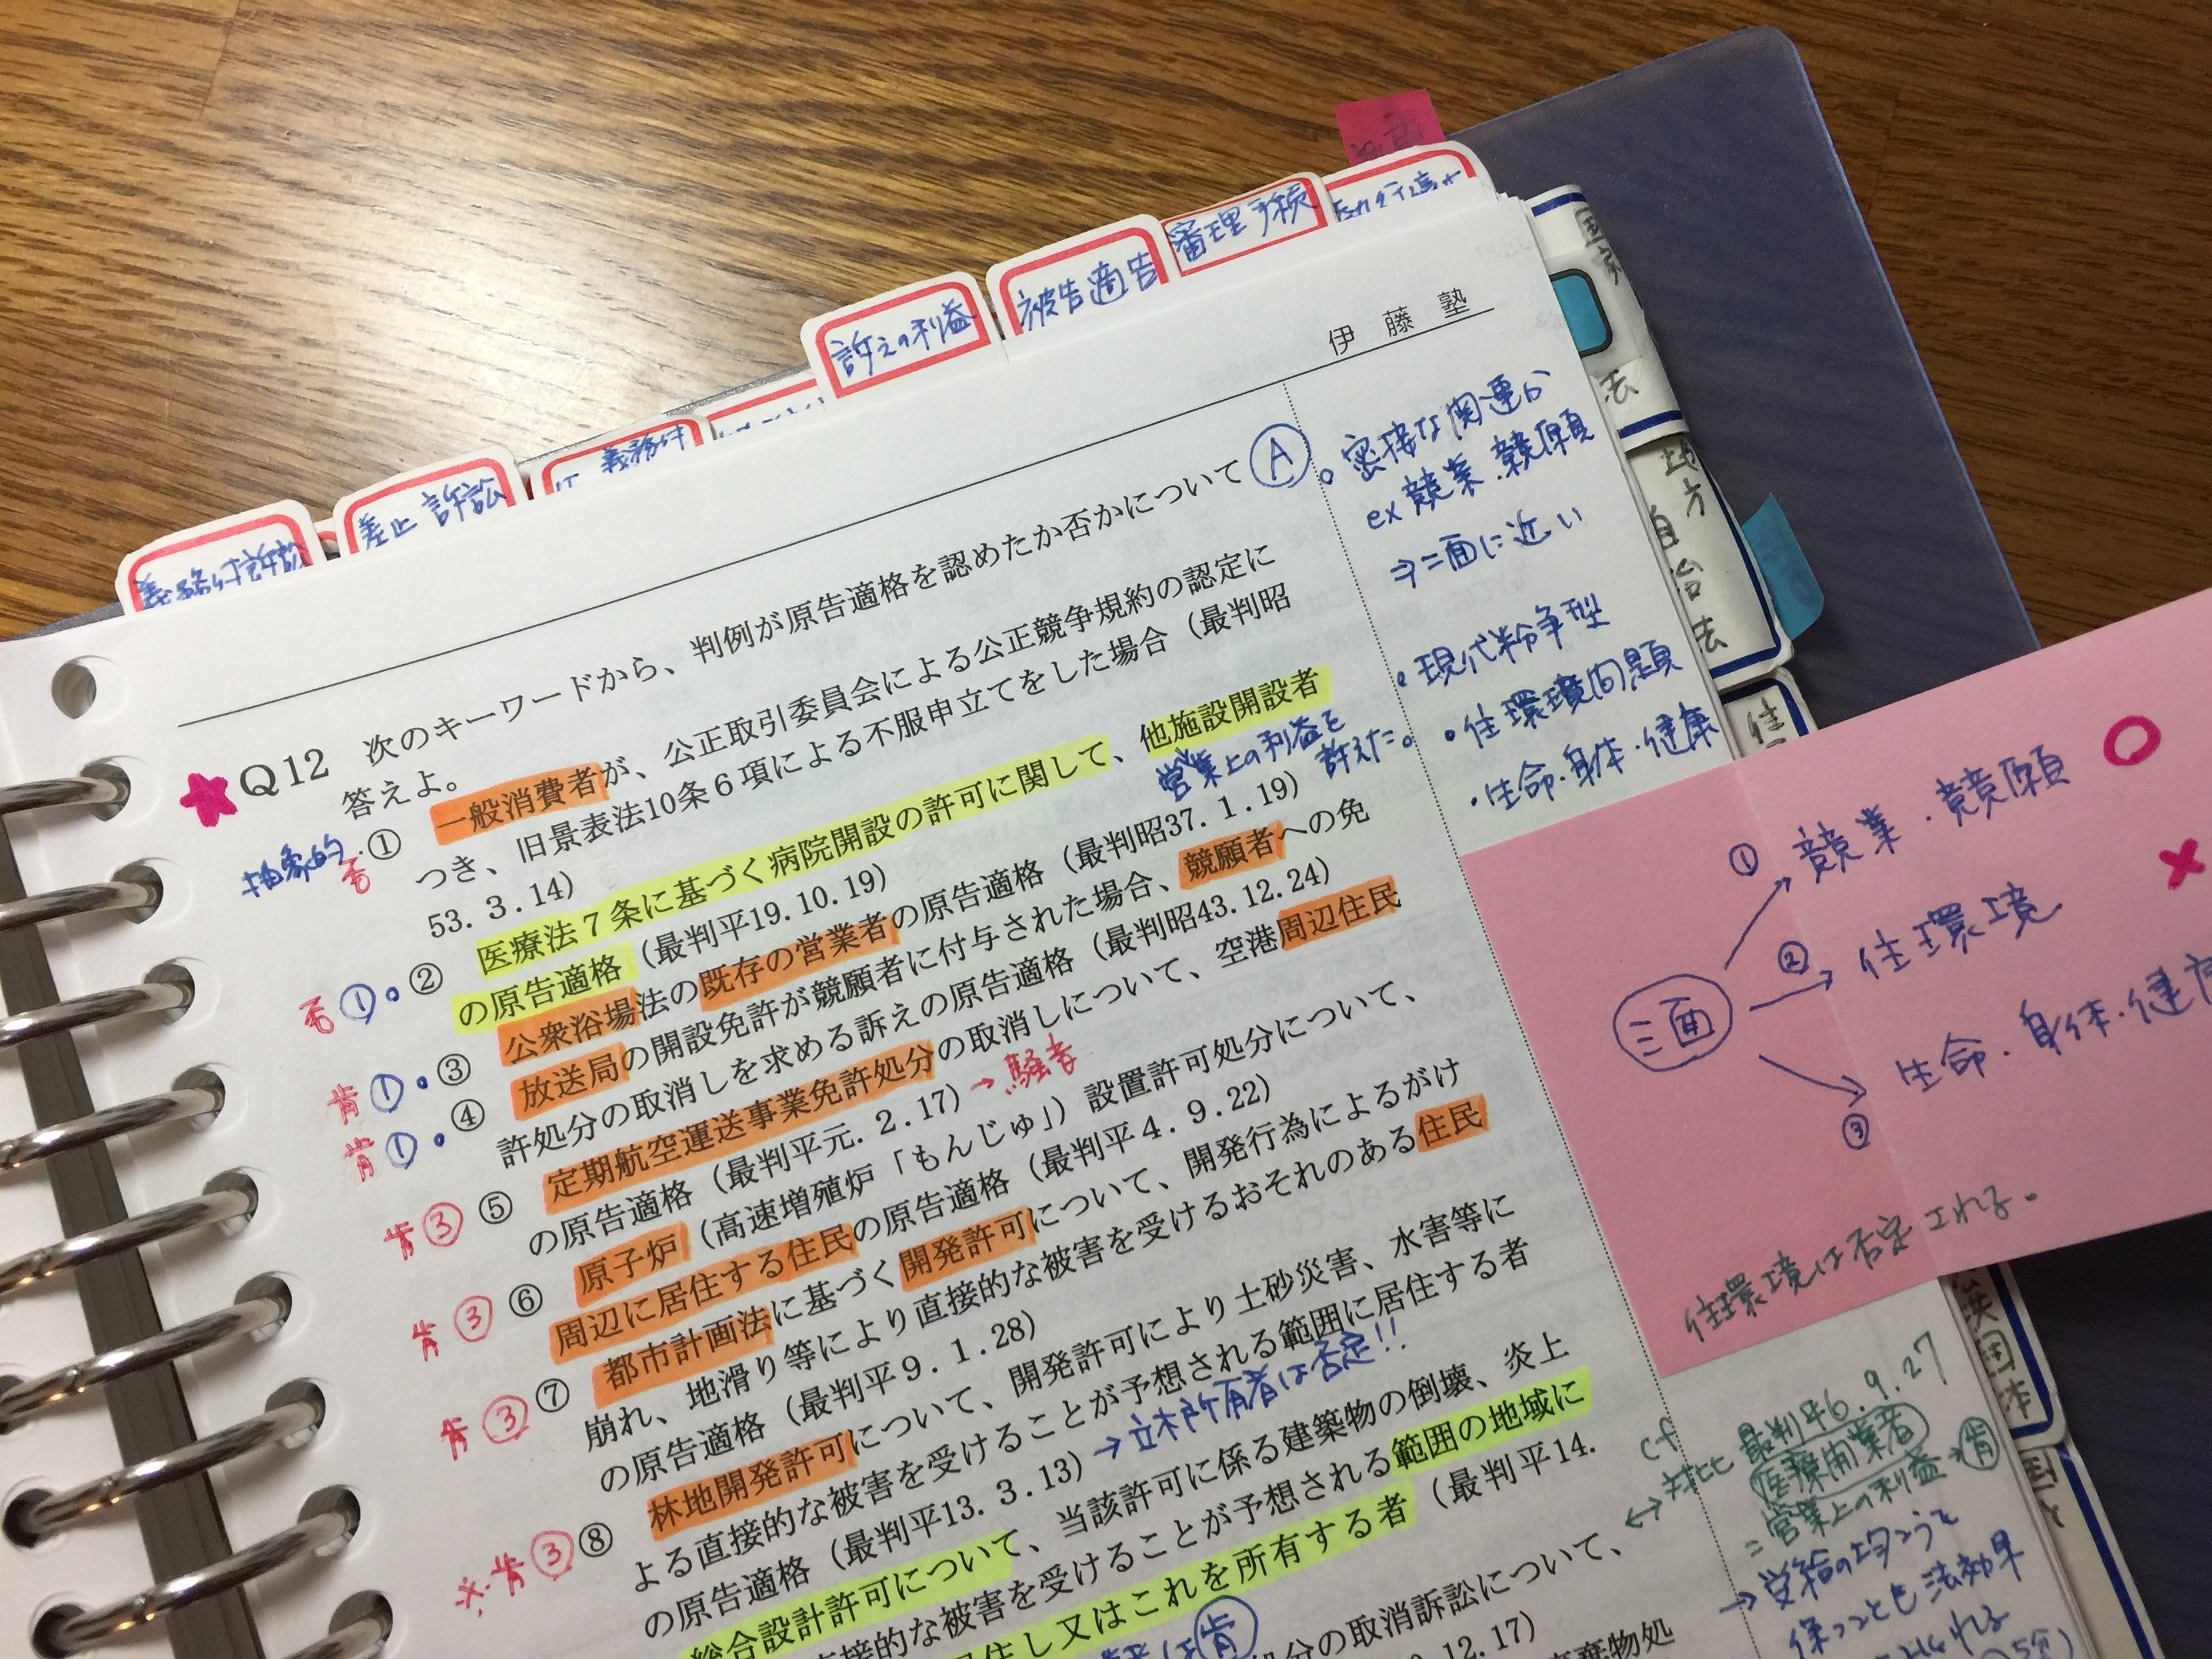 義務付訴訟
差止訴訟
義務付
訴えの利益
被告適格
審理手続
国家
法
地方
自治法
伊藤塾
★Q12 次のキーワードから、判例が原告適格を認めたか否かについて Ⓐ
答えよ。
抽象的 否 ① 一般消費者が、公正取引委員会による公正競争規約の認定に
つき、旧景表法10条6項による不服申立てをした場合（最判昭
53.3.14）
否 ①・② 医療法7条に基づく病院開設の許可に関して、他施設開設者
営業上の利益を
訴えた。
の原告適格（最判平19.10.19）
肯 ①・③ 公衆浴場法の既存の営業者の原告適格（最判昭37.1.19）
肯 ①・④ 放送局の開設免許が競願者に付与された場合、競願者への免
許処分の取消しを求める訴えの原告適格（最判昭43.12.24）
肯 ③ ⑤ 定期航空運送事業免許処分の取消しについて、空港周辺住民
の原告適格（最判平元.2.17）→騒音
肯 ③ ⑥ 原子炉（高速増殖炉「もんじゅ」）設置許可処分について、
周辺に居住する住民の原告適格（最判平4.9.22）
肯 ③ ⑦ 都市計画法に基づく開発許可について、開発行為によるがけ
崩れ、地滑り等により直接的な被害を受けるおそれのある住民
の原告適格（最判平9.1.28）
※・肯 ③ ⑧ 林地開発許可について、開発許可により土砂災害、水害等に
よる直接的な被害を受けることが予想される範囲に居住する者
の原告適格（最判平13.3.13）→立木所有者は否定!!
総合設計許可について、当該許可に係る建築物の倒壊、炎上
直接的な被害を受けることが予想される範囲の地域に
居住し又はこれを所有する者（最判平14.
肯
処分の取消訴訟について、
12.17）
廃棄物処
。密接な関連か
ex 競業・競願
⇒二面に近い
・現代紛争型
・住環境問題
・生命・身体・健康
三面
① 競業・競願 ○
② 住環境 ×
③ 生命・身体・健
住環境は否定される。
cf
↔対比 最判平6.9.27
医療開業者
=営業上の利益→肯